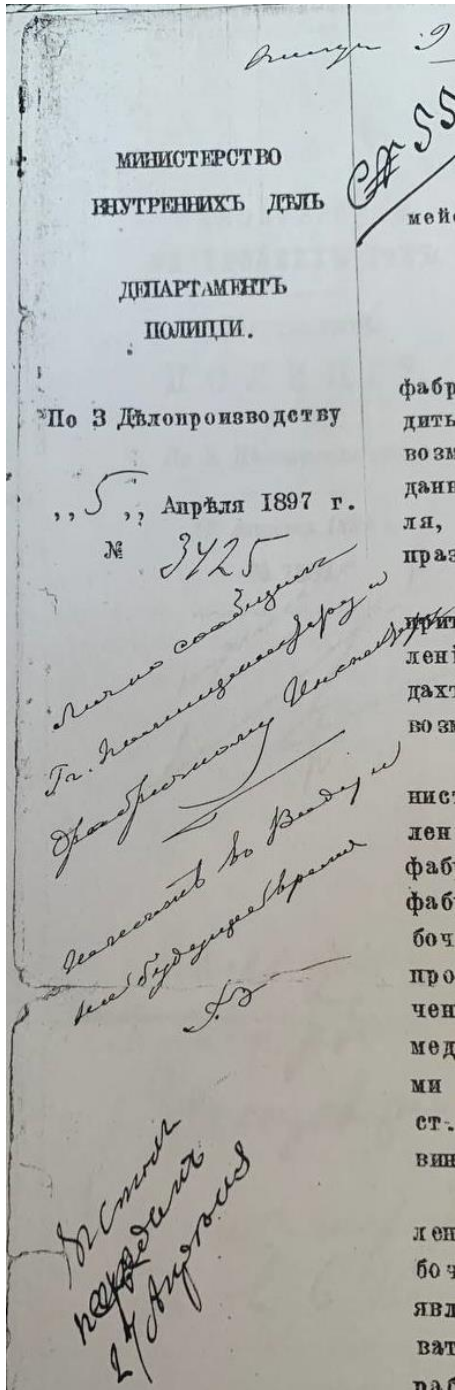 МИНИСТЕРСТВО
ВНУТРЕННИХЪ ДѢЛЪ
ДЕПАРТАМЕНТЪ
ПОЛИЦІИ.
По 3 Дѣлопроизводству
,,5,, Апрѣля 1897 г.
№ 3425
Лично сообщить
Гг. Полицеймейстеру и
Фабричному Инспектору
имѣть въ виду и
на будущее время
передать
27 Апрѣля
55
мейс
фабр
дить
возм
данн
ля,
праз
лені
дахт
возм
нист
лен
фабр
фабр
боч
про
чен
мед
ми
ст.
вин
лен
боч
явл
ват
раб